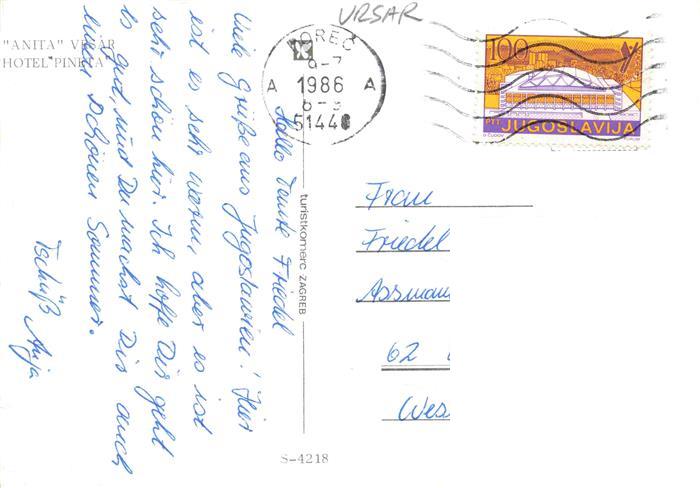 VRSAR
"ANITA" VRSAR
HOTEL "PINETA"
POREČ
9-7
1986
A A
8-9
51440
100
PTT JUGOSLAVIJA
Hallo Tante Friedel
viele Grüße aus Jugoslawien! Hier
ist es sehr warm, aber es ist
sehr schön hier. Ich hoffe Dir geht
es gut, und Du machst Dir auch
einen schönen Sommer.
Tschüß Anja
turistkomerc ZAGREB
S-4218
Frau
Friedel
Assman
62
Wes